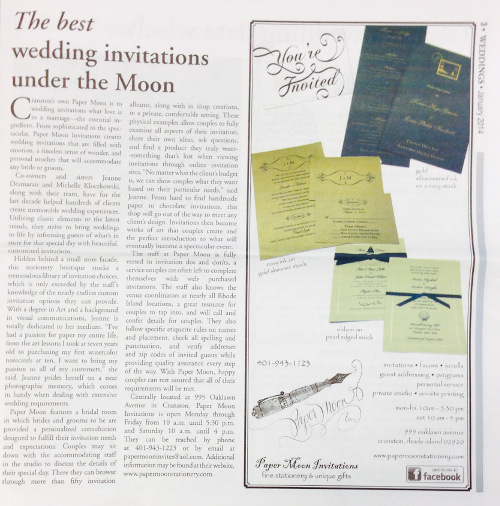 The best
wedding invitations
under the Moon
Cranston's own Paper Moon is to
wedding invitations what love is
to a marriage—the essential in-
gredient. From sophisticated to the spec-
tacular, Paper Moon Invitations creates
wedding invitations that are filled with
emotion, a timeless sense of wonder, and
personal touches that will accommodate
any bride or groom.
Co-owners and sisters Jeanne
Desmarais and Michelle Kloczkowski,
along with their team, have for the
last decade helped hundreds of clients
create memorable wedding experiences.
Utilizing classic elements to the latest
trends, they strive to bring weddings
to life by informing guests of what's in
store for that special day with beautiful,
customized invitations.
Hidden behind a small store facade,
this stationery boutique stocks a
tremendous library of invitation choices,
which is only exceeded by the staff's
knowledge of the nearly endless custom
invitation options they can provide.
With a degree in Art and a background
in visual communications, Jeanne is
totally dedicated to her medium. "I've
had a passion for paper my entire life,
from the art lessons I took at seven years
old to purchasing my first watercolor
notecards at ten. I want to bring my
passion to all of my customers,"
said. Jeanne prides herself on a near
photographic memory, which comes
in handy when dealing with extensive
wedding requirements.
Paper Moon features a bridal room
in which brides and grooms to be are
provided a personalized consultation
designed to fulfill their invitation needs
and expectations. Couples may sit
down with the accommodating staff
in the studio to discuss the details of
their special day. There they can browse
through more than fifty invitation
albums, along with in shop creations,
in a private, comfortable setting. These
physical examples allow couples to fully
examine all aspects of their invitation,
share their own ideas, ask questions,
and find a product they truly want-
-something that's lost when viewing
invitations through online invitation
sites. "No matter what the client's budget
is, we can show couples what they want
based on their particular needs," said
Jeanne. From hard to find handmade
paper to chocolate invitations, this
shop will go out of the way to meet any
client's design. Invitations then become
works of art that couples create and
the perfect introduction to what will
eventually become a spectacular event.
The staff at Paper Moon is fully
versed in invitation dos and don'ts, a
service couples are often left to complete
themselves with web purchased
invitations. The staff also knows the
venue coordinators at nearly all Rhode
Island locations, a great resource for
couples to tap into, and will call and
confer details for couples. They also
follow specific etiquette rules on names
and placement, check all spelling and
punctuation, and verify addresses
and zip codes of invited guests while
providing quality assurance every step
of the way. With Paper Moon, happy
couples can rest assured that all of their
requirements will be met.
Centrally located at 995 Oaklawn
Avenue in Cranston, Paper Moon
Invitations is open Monday through
Friday from 10 a.m. until 5:30 p.m.
and Saturday 10 a.m. until 4 p.m.
They can be reached by phone
at 401-943-1223 or by email at
papermooninvites@aol.com. Additional
information may be found at their website,
www.papermoonstationery.com.
You're
Invited
gold
thermography ink
on a navy stock
ivory ink on
gold shimmer stock
ribbon on
pearl edged stock
401-943-1123
invitations • favors • scrolls
guest addressing • programs
personal service
private studio • on-site printing
mon-fri. 10am - 5:30 pm
sat. 10 am - 4 pm
995 oaklawn avenue
cranston, rhode island 02920
www.papermoonstationery.com
Paper Moon
Paper Moon Invitations
fine stationery & unique gifts
facebook
3 • WEDDINGS • January 2014